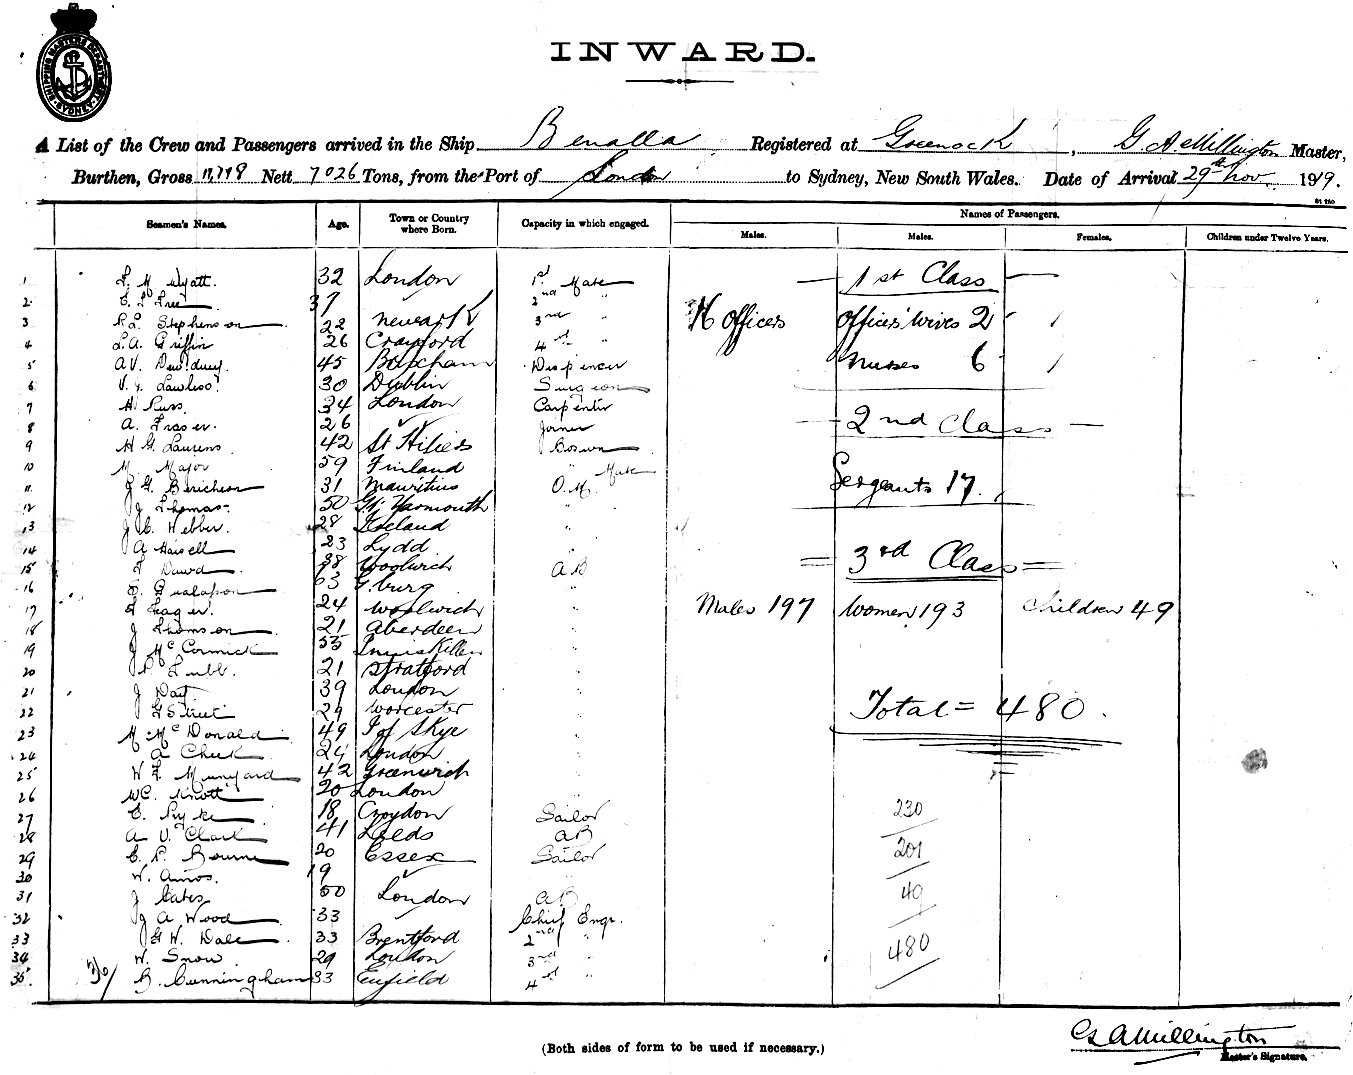 SHIPPING MASTER'S DEPARTMENT SYDNEY
INWARD.
A List of the Crew and Passengers arrived in the Ship Benalla Registered at Greenock, G A Millington Master,
Burthen, Gross 11,118 Nett 7026 Tons, from the Port of London to Sydney, New South Wales. Date of Arrival 29th Nov. 1919.
Seamen's Names. Age. Town or Country where Born. Capacity in which engaged. Names of Passengers.
Males. Males. Females. Children under Twelve Years.
1 M. Wyatt. 32 London 1st Mate
1st Class
2 37 2nd "
3 Stephenson 22 Newark 3rd "
16 Officers Officers' Wives 2
4 L.A. Griffin 26 Crayford 4th "
5 A.V. Dewdney. 45 Brixham Dispenser
Nurses 6
6 Lawless 30 Dublin Surgeon
7 H. Russ. 34 London Carpenter
8 A. Fraser. 26 " Joiner
2nd Class
9 H G Laurens 42 St Hiliers Bosun
10 M. Major 59 Finland " Mate
11 31 Mauritius Q.M.
Sergeants 17.
12 J Thomas 50 Gt. Yarmouth "
13 J C Webber. 28 Ireland "
14 A Hassell 23 Lydd "
3rd Class
15 38 Woolwich AB
16 63 G.burg "
17 24 Woolwich "
Males 197 Women 193 Children 49
18 J Thomson 21 Aberdeen "
19 J McCormick 55 Inniskillen "
20 P. Tubb. 21 Stratford "
21 J Day 39 London "
22 G Street 29 Worcester "
Total = 480.
23 M. McDonald 49 I of Skye "
24 A Cheek 24 London "
25 W. F. Munyard 42 Greenwich "
26 WC. Knott 20 London "
27 E. Ryke 18 Croydon Sailor
230
28 A V. Clark 41 Leeds AB
29 C. P. Bourne 20 Essex Sailor
201
30 W. Amos. 19 " "
31 J Cates 50 London AB
49
32 J A Wood 33 " Chief Engr.
33 G W. Dale 33 Brentford 2nd "
480
34 W. Snow 29 London 3rd "
35 B. Cunningham 33 Enfield 4th "
G A Millington
(Both sides of form to be used if necessary.)
Master's Signature.